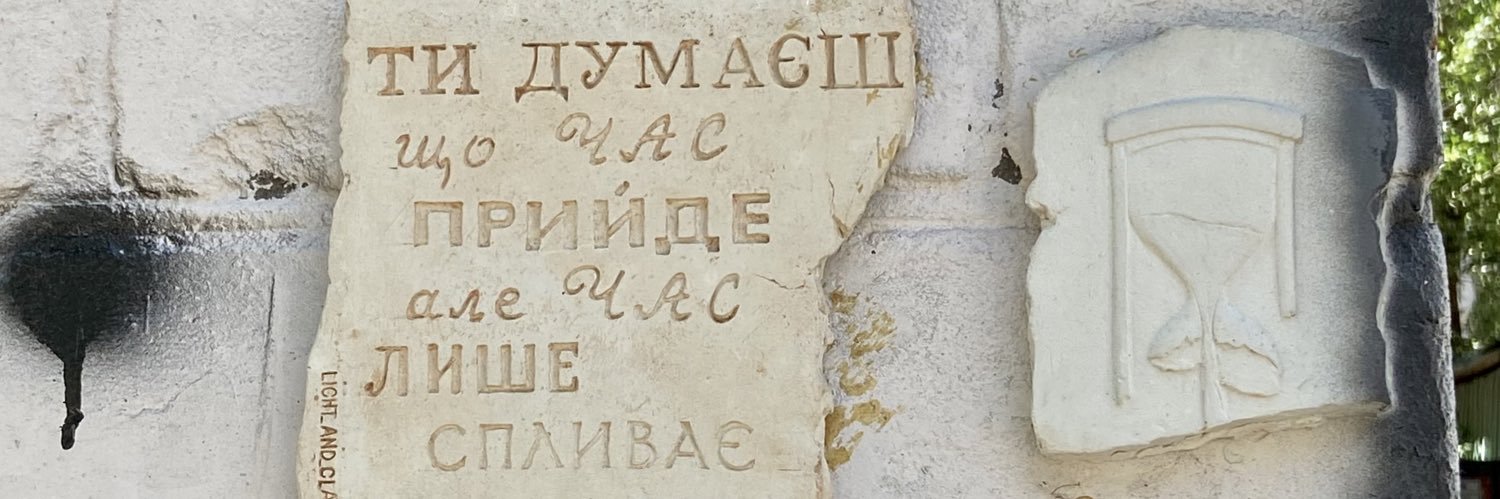 ТИ ДУМАЄШ
що ЧАС
ПРИЙДЕ
але ЧАС
ЛИШЕ
СПЛИВАЄ
LIGHT_AND_CLA